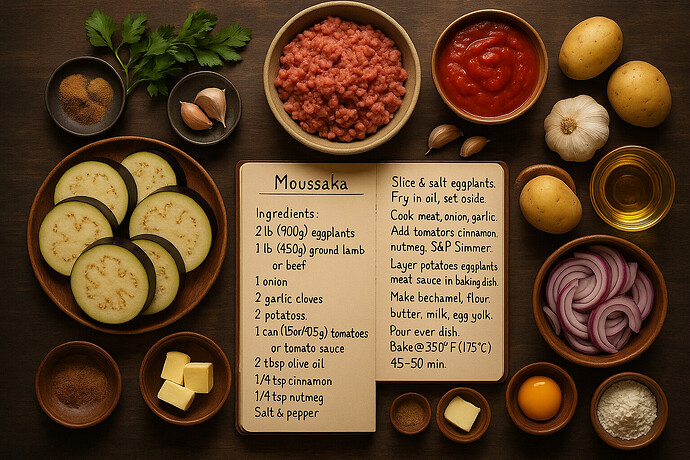 Moussaka
Ingredients:
2 lb (900g) eggplants
1 lb (450g) ground lamb
or beef
1 onion
2 garlic cloves
2 potatoss.
1 can (15or/405g) tomatoes
or tomato sauce
2 tbsp olive oil
1/4 tsp cinnamon
1/4 tsp nutmeg
Salt & pepper
Slice & salt eggplants.
Fry in oil, set oside.
Cook meat, onion, garlic.
Add tomators cinnamon.
nutmeg, S&P Simmer.
Layer potatoes eggplants
meat sauce in baking dish.
Make bechamel, flour.
butter, milk, egg yolk.
Pour ever dish.
Bake@350°F(175°C)
45-50 min.